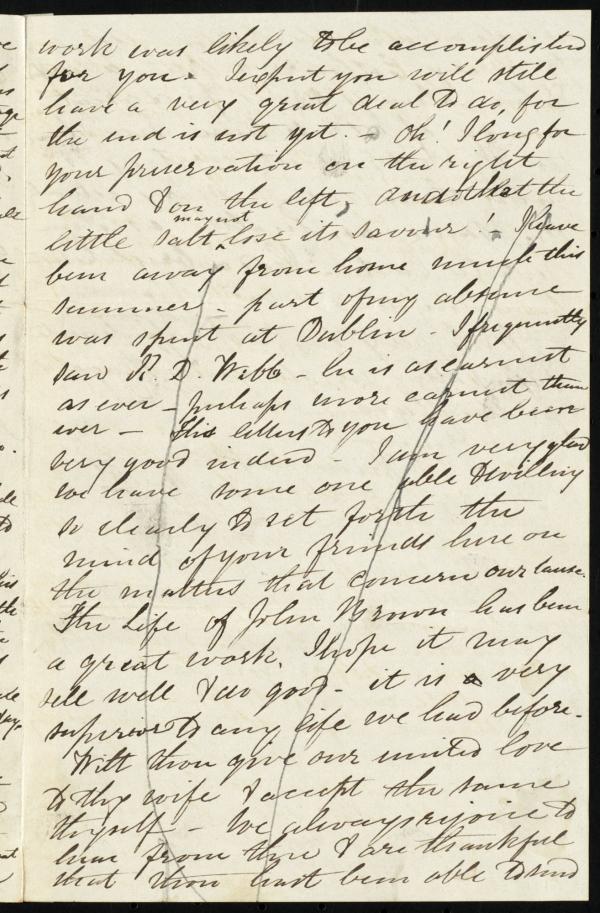 work was likely to be accomplished
for you. I expect you will still
have a very great deal to do, for
the end is not yet. - Oh! I long for
your preservation on the right
hand & on the left, and that the
little salt may not lose its savour! - I have
been away from home much this
summer - part of my absence
was spent at Dublin - I frequently
saw R. D. Webb - he is as earnest
as ever - perhaps more earnest than
ever - His letters to you have been
very good indeed - I am very glad
we have some one able & willing
so clearly to set forth the
mind of your friends here on
the matters that concern our cause.
The Life of John Brown has been
a great work. I hope it may
sell well & do good - it is a very
superior to any life we had before.
Wilt thou give our united love
to thy wife & accept the same
thyself - We always rejoice to
hear from thee & are thankful
that thou hast been able to send